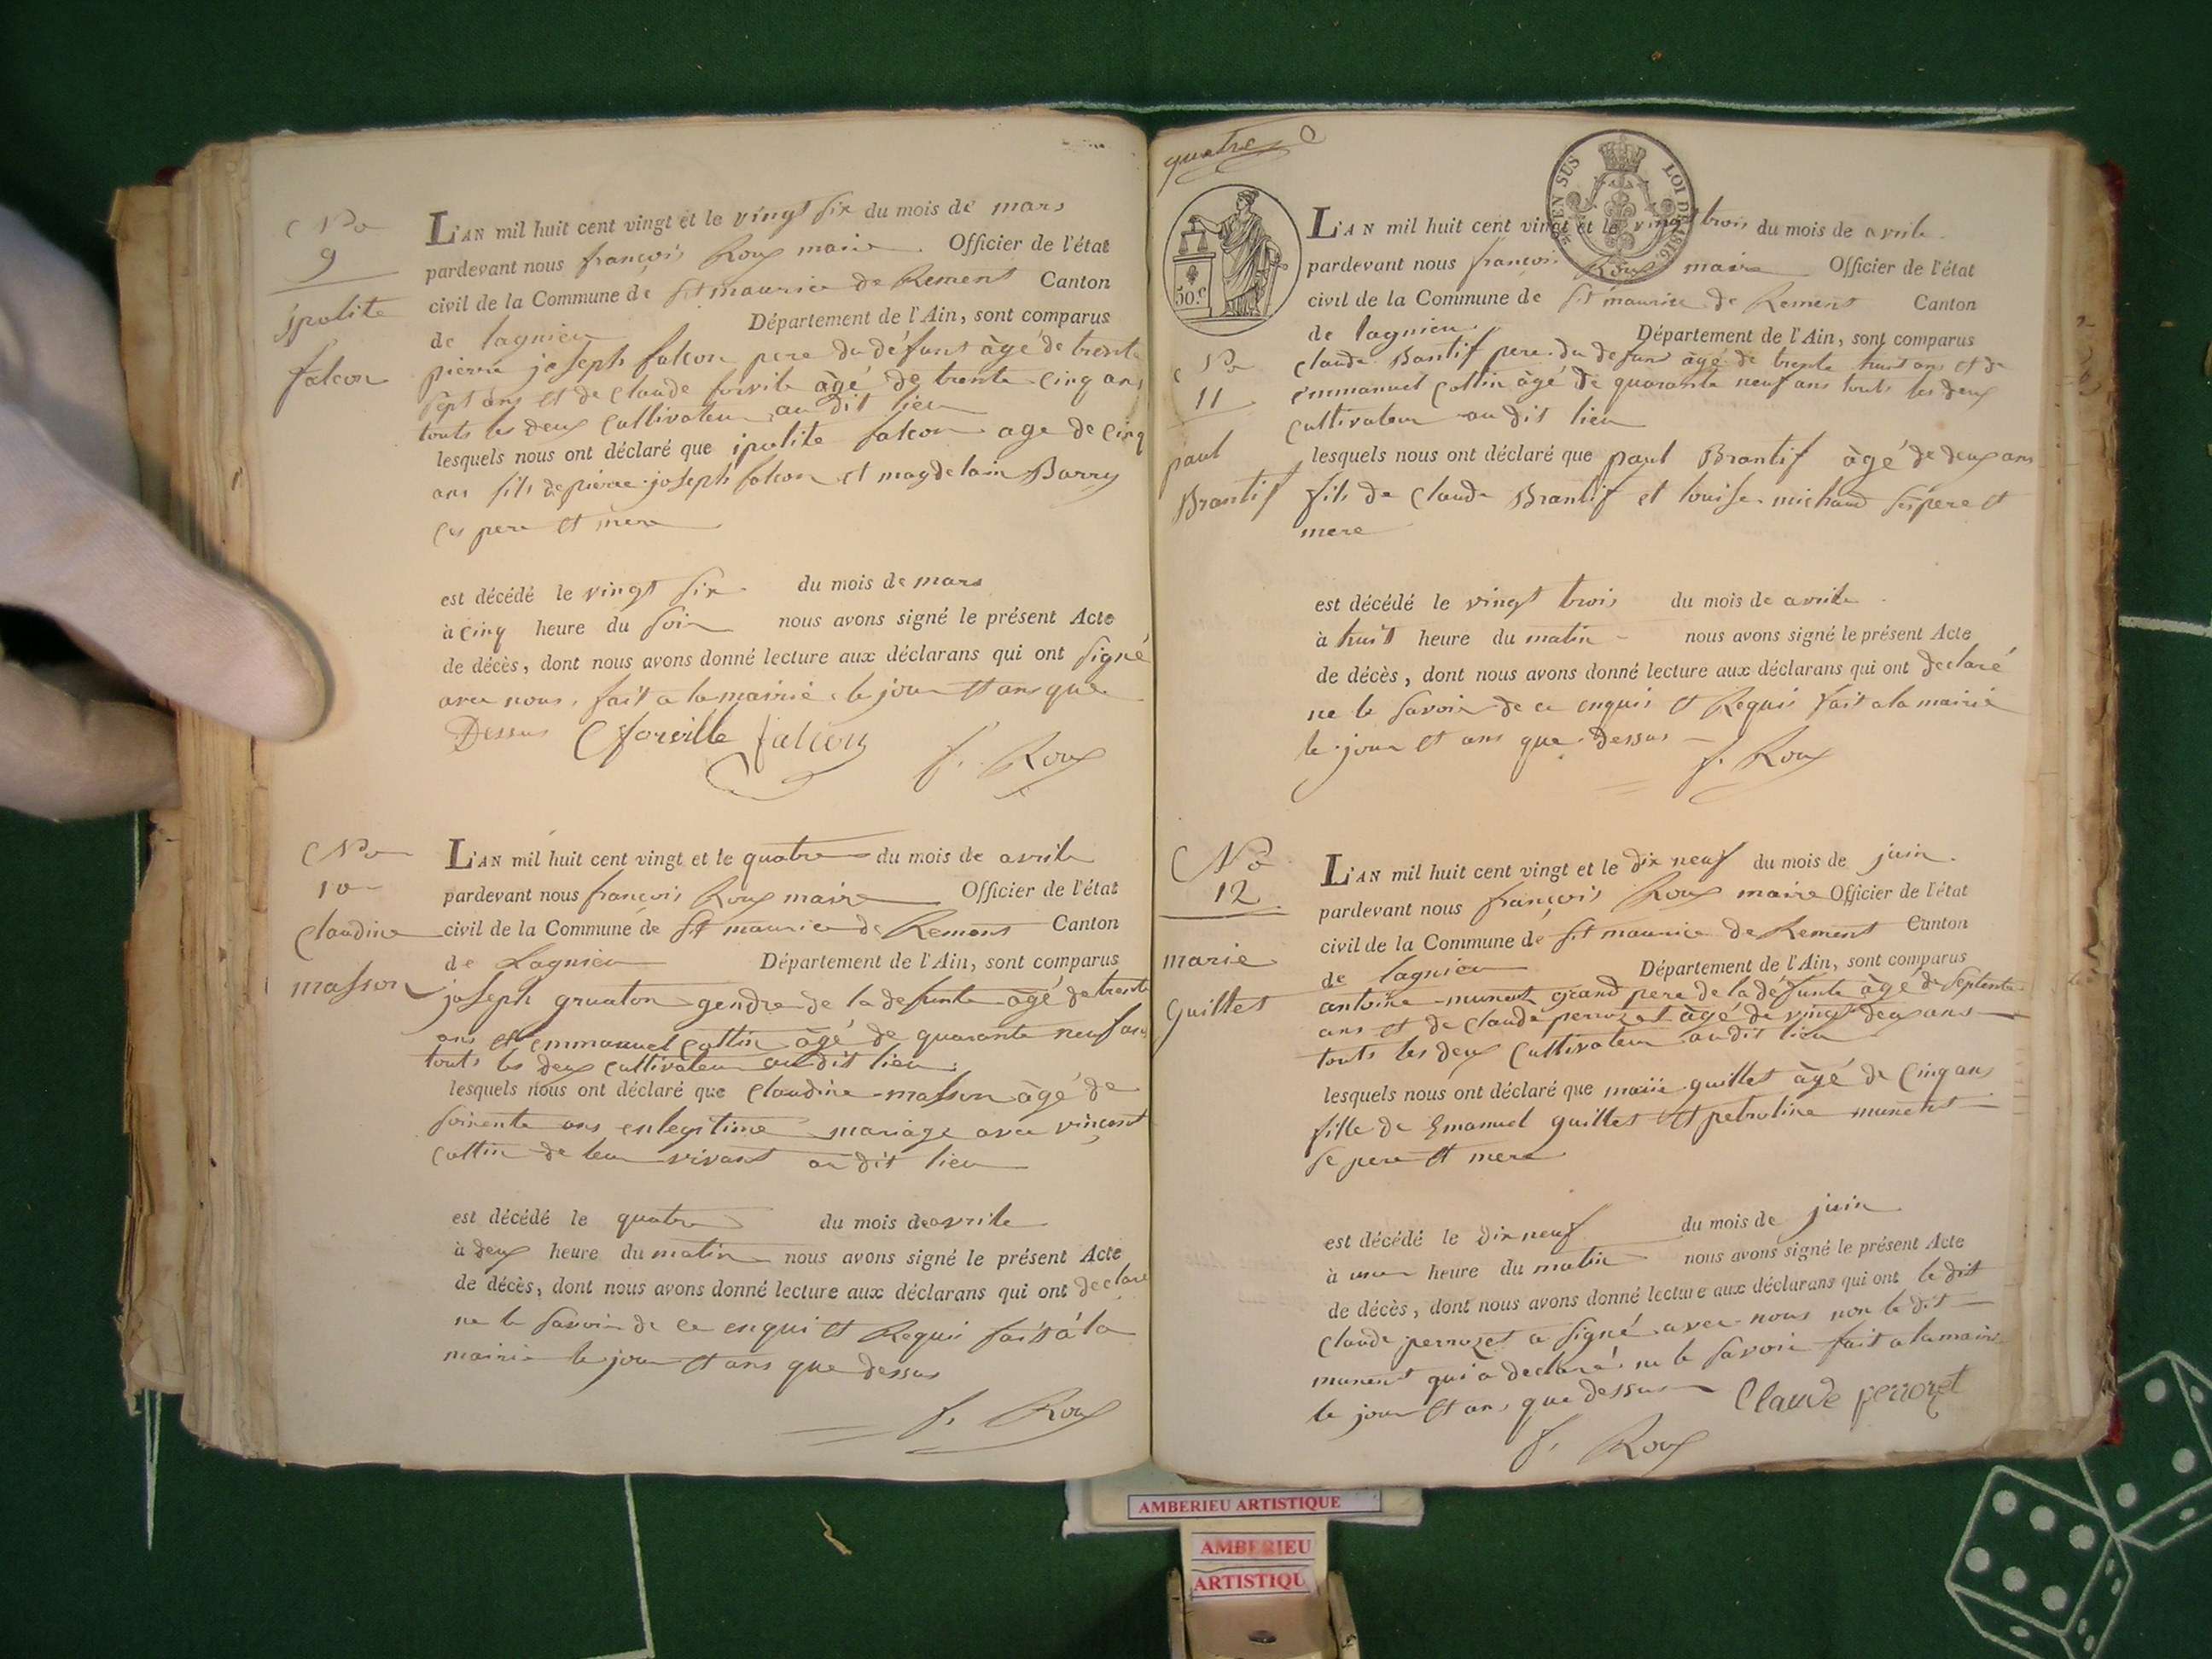 No
9
ipolite
falcon
L'AN mil huit cent vingt et le vingt six du mois de mars
pardevant nous françois Roux maire Officier de l'état
civil de la Commune de St maurice de Rement Canton
de lagnieu Département de l'Ain, sont comparus
pierre joseph falcon pere du défunt àgé de trente
sept ans et de claude forvile àgé de trente cinq ans
touts les deux Cultivateur au dit lieu
lesquels nous ont déclaré que ipolite falcon age de cinq
ans fils de pierre joseph falcon et magdelain Barry
ces pere et mere
est décédé le vingt six du mois de mars
à cinq heure du soir nous avons signé le présent Acte
de décès, dont nous avons donné lecture aux déclarans qui ont signé
avec nous, fait a la mairie le jour et ans que
Dessus C forville falcon
f. Roux
No
10
Claudine
masson
L'AN mil huit cent vingt et le quatre du mois de avrile
pardevant nous françois Roux maire Officier de l'état
civil de la Commune de St maurice de Remens Canton
de Lagnieu Département de l'Ain, sont comparus
joseph gruaton gendre de la defunte àgé de trente
ans et emmanuel Collin àgé de quarante neuf ans
touts les deux Cultivateur au dit lieu
lesquels nous ont déclaré que Claudine masson àgé de
soixente ans enlegitime mariage avec vinçent
Cottin de leur vivant au dit lieu
est décédé le quatre du mois de avrile
à deux heure du matin nous avons signé le présent Acte
de décès, dont nous avons donné lecture aux déclarans qui ont declaré
ne le savoir de ce enqui et Requis fait à la
mairie le jour et ans que dessus
f. Roux
quatre
EN SUS LOI DE 1816
50.c
No
11
paul
Brantif
L'AN mil huit cent vingt et le vingt trois du mois de avrile
pardevant nous françois Roux maire Officier de l'état
civil de la Commune de St maurice de Rement Canton
de lagnieu Département de l'Ain, sont comparus
Claude Bantif pere du defunt àgé de trente huit ans et de
emmanuel Collin àgé de quarante neuf ans touts les deux
Cultivateur au dit lieu
lesquels nous ont déclaré que paul Brantif àgé de deux ans
fils de Claude Brantif et louise michaud ses pere et
mere
est décédé le vingt trois du mois de avrile
à huit heure du matin nous avons signé le présent Acte
de décès, dont nous avons donné lecture aux déclarans qui ont declaré
ne le savoir de ce enquis et Requis fait a la mairie
le jour et ans que dessus
f. Roux
No
12
marie
Guillet
L'AN mil huit cent vingt et le dix neuf du mois de juin
pardevant nous françois Roux maire Officier de l'état
civil de la Commune de St maurice de Rement Canton
de lagnieu Département de l'Ain, sont comparus
antoine munent grand pere de la défunte àgé de septente
ans et de claude perrozet àgé de vingt deux ans
touts les deux Cultivateur au dit lieu
lesquels nous ont déclaré que marie guillet àgé de Cinq ans
fille de Emanuel guillet et petroline munent
se pere et mere
est décédé le dix neuf du mois de juin
à une heure du matin nous avons signé le présent Acte
de décès, dont nous avons donné lecture aux déclarans qui ont le dit
Claude perrozet a signé avec nous non le dit
munent qui a declaré ne le savoir fait a la mairie
le jour et ans que dessus Claude perrozet
f. Roux
AMBERIEU ARTISTIQUE
AMBERIEU
ARTISTIQU